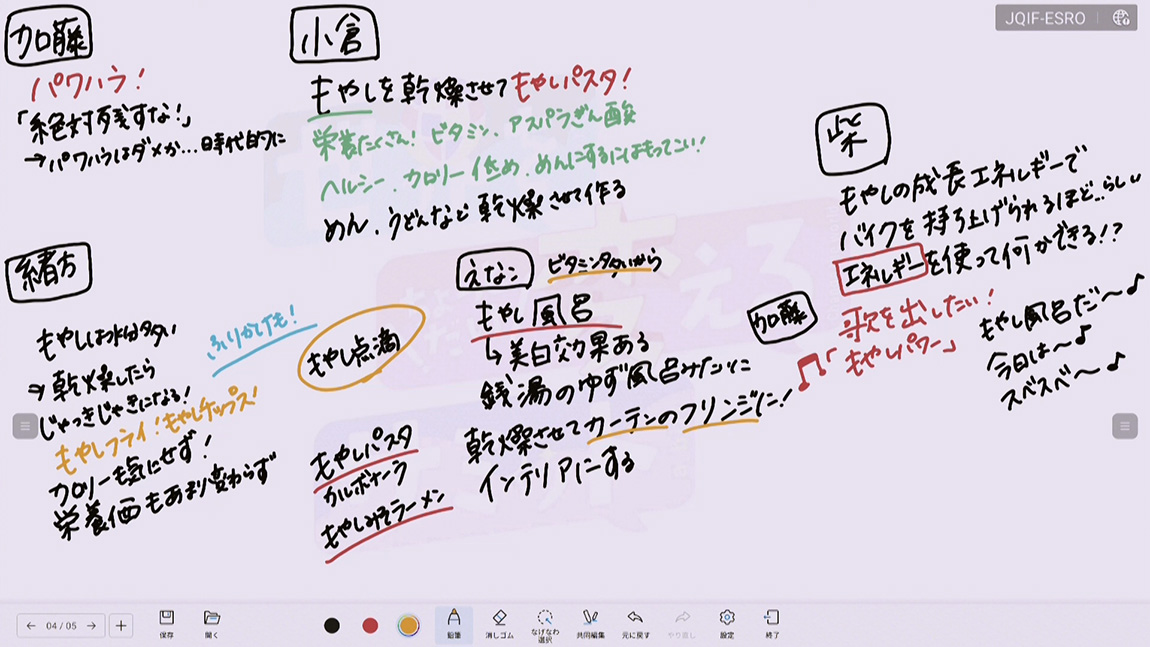 JQIF-ESRO
加藤
パワハラ!
「絶対残すな!」
→パワハラはダメか…時代的に
小倉
もやしを乾燥させてもやしパスタ!
栄養たくさん! ビタミン、アスパラギン酸
ヘルシー、カロリー低め、めんにするにはもってこい!
めん、うどんなど乾燥させて作る
柴
もやしの成長エネルギーで
バイクを持ち上げられるほど..らしい
エネルギーを使って何かできる!?
加藤
歌を出したい!
「もやしパワー」
もやし風呂だ〜♪
今日は〜♪
スベスベ〜♪
緒方
もやしは水分多い
⇒乾燥したら
じゃきじゃきになる!
もやしフライ!もやしチップス!
カロリーも気にせず!
栄養価もあまり変わらず
ふりかけも!
もやし点滴
もやしパスタ
カルボナーラ
もやしみそラーメン
えなこ
ビタミン多いから
もやし風呂
↳美白効果ある
銭湯のゆず風呂みたいに
乾燥させてカーテンのフリンジに!
インテリアにする
04 / 05
保存
開く
鉛筆
消しゴム
なげなわ
選択
共同編集
元に戻す
やり直し
設定
終了